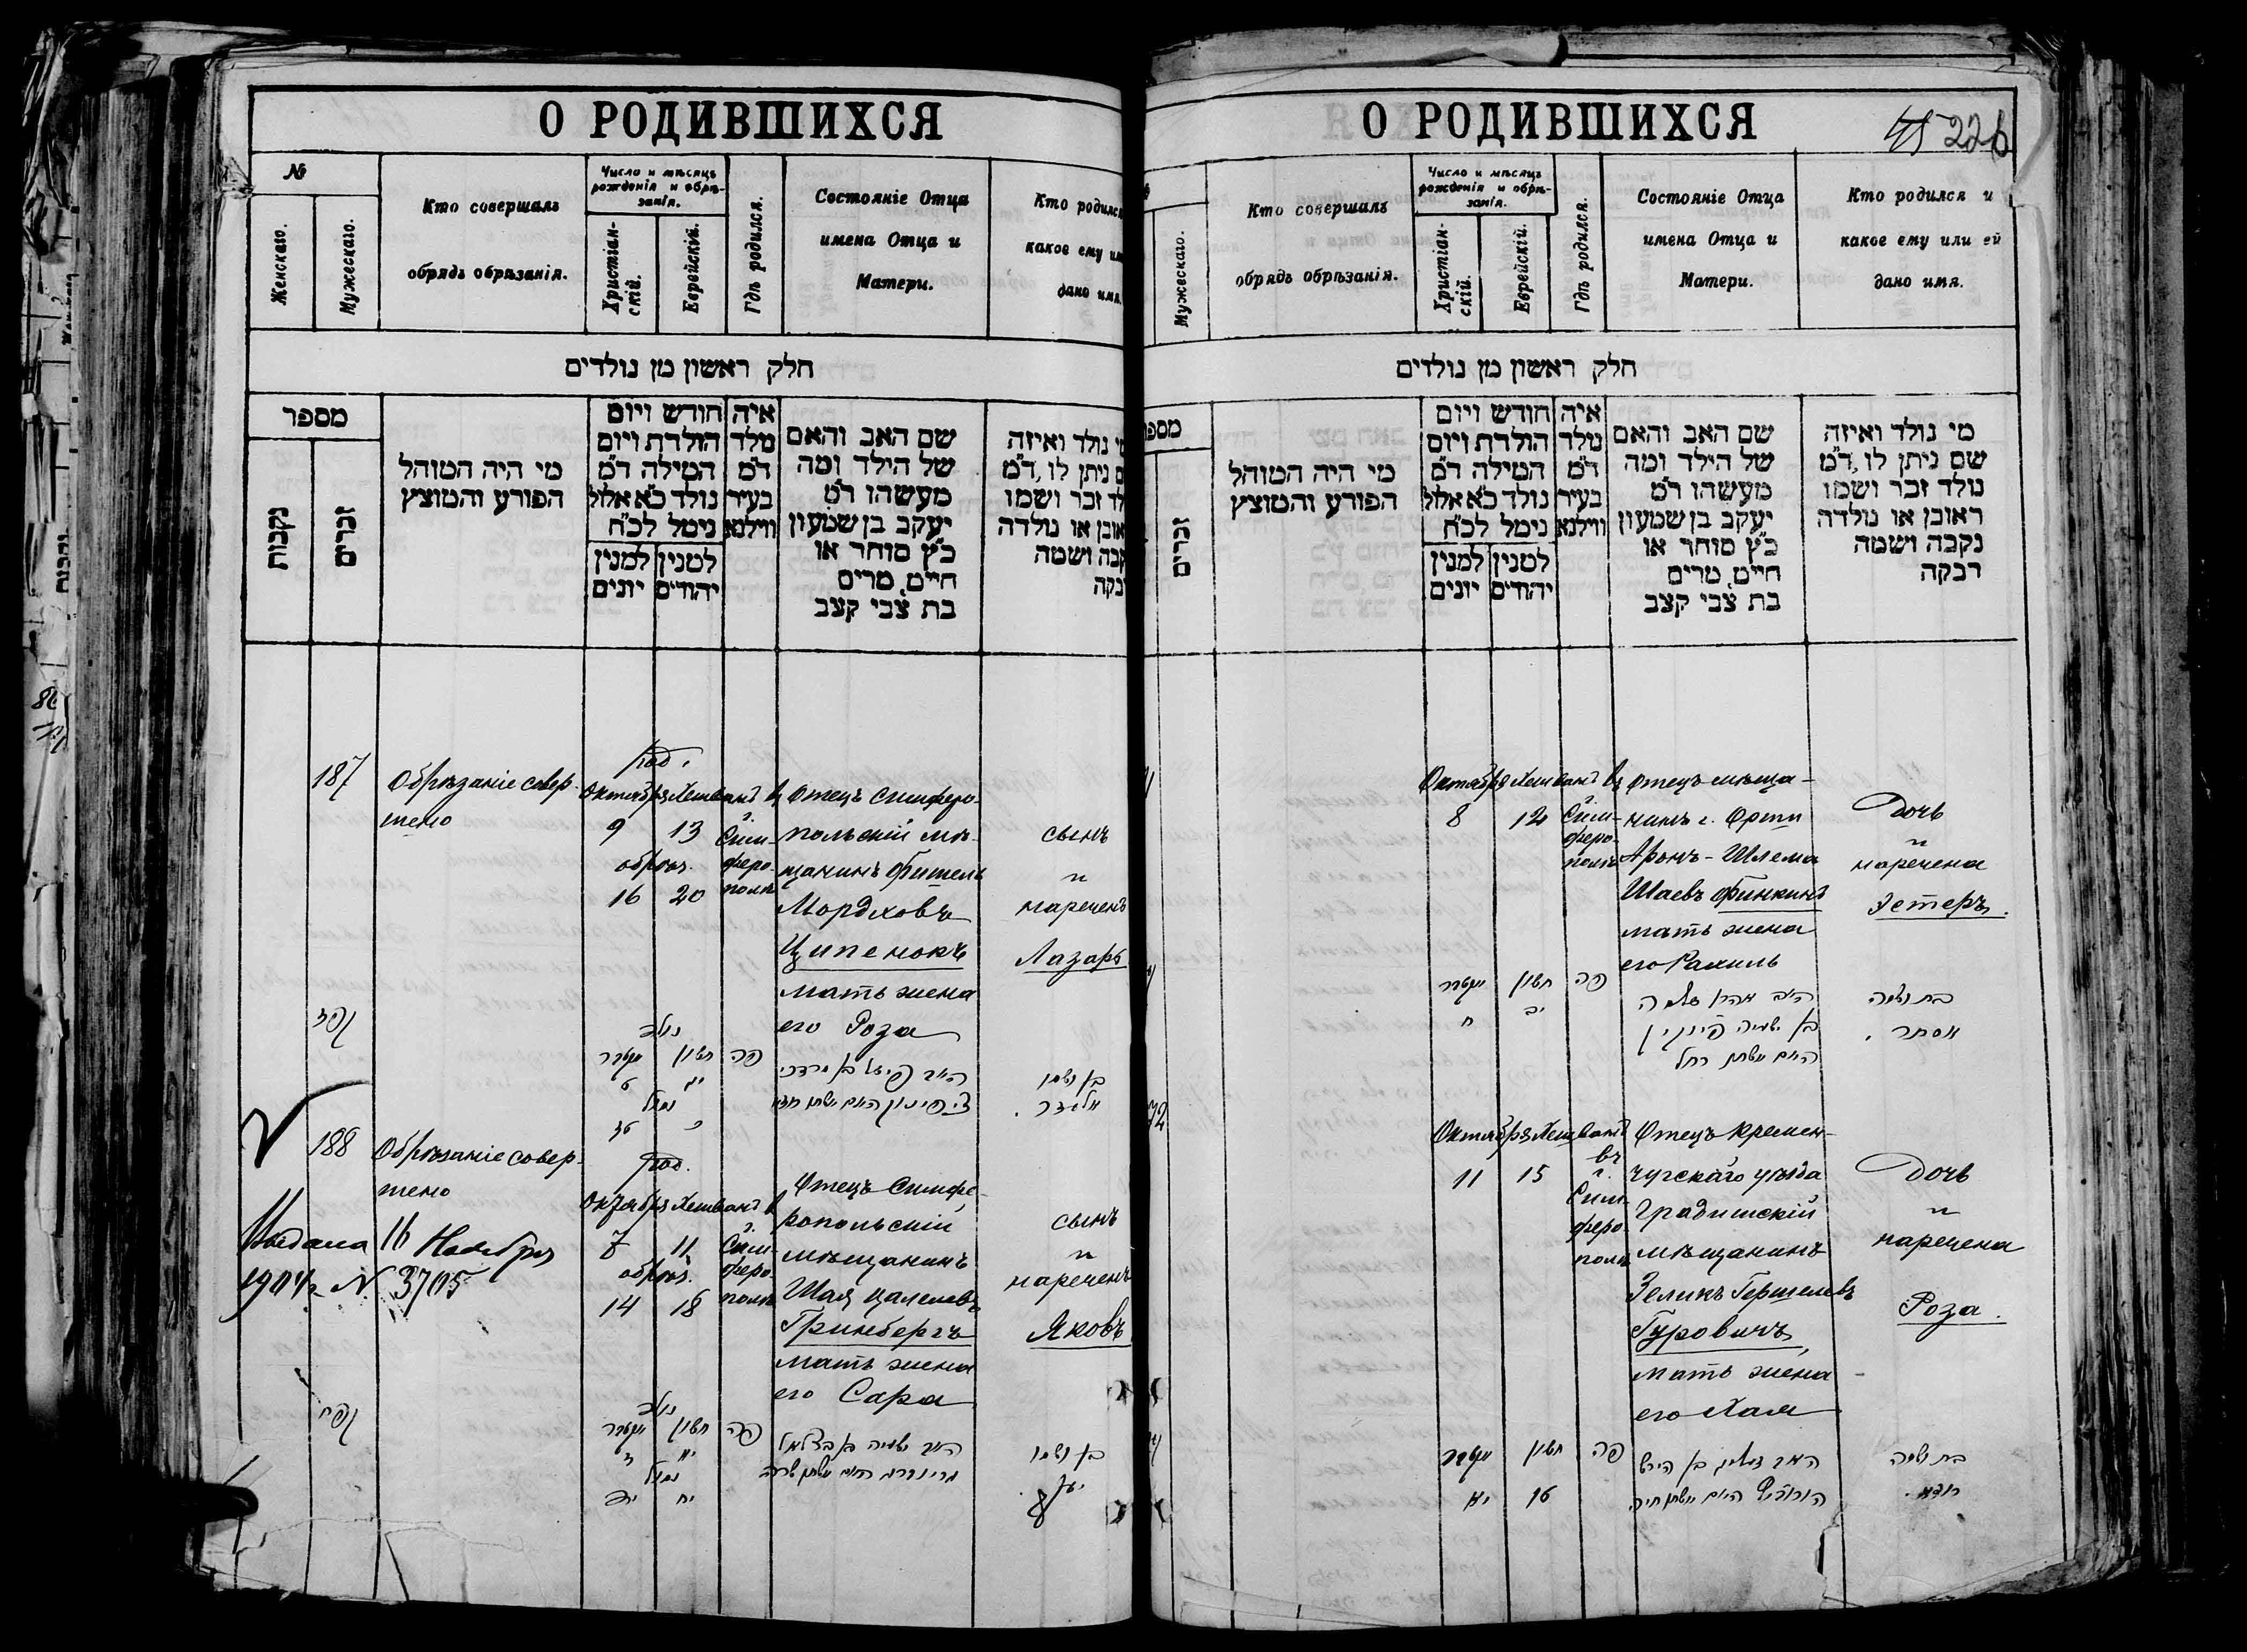 О РОДИВШИХСЯ
№
Женскаго.
Мужескаго.
Кто совершалъ
обрядъ обрѣзанія.
Число и мѣсяцъ
рожденія и обрѣ-
занія.
Христіан-
скій.
Еврейскій.
Гдѣ родился.
Состояніе Отца
имена Отца и
Матери.
Кто родился
какое ему или
дано имя.
חלק ראשון מן נולדים
מספר
נקבות
זכרים
מי היה המוהל
הפורע והמוצץ
חודש ויום
הולדת ויום
המילה ד״מ
נולד כ״א אלול
נימל לכ״ח
למנין
יונים
למנין
יהודים
איה
מלד
ד״מ
בעיר
ווילנא
שם האב והאם
של הילד ומה
מעשהו ד״מ
יעקב בן שמעון
כ״ץ סוחר או
חייט, מרים
בת צבי קצב
מי נולד ואיזה
שם ניתן לו, ד״מ
נולד זכר ושמו
ראובן או נולדה
נקבה ושמה
רבקה
187
Обрѣзаніе совер-
шено
род.
Октября Хешванъ
9 13
обрѣз.
16 20
въ
г.
Сим-
феро-
полѣ
Отецъ Симферо-
польскій мѣ-
щанинъ Фишель
Мордховъ
Ципенюкъ
мать жена
его Роза
сынъ
и
нареченъ
Лазарь
קפז
נולד
אקטבר חשון
ט יג
נמול
טז כ
פה
האב פישל בן מרדכי
בן ושמו
אליעזר.
188
Обрѣзаніе совер-
шено
род.
Октября Хешванъ
7 11
обрѣз.
14 18
въ
г.
Сим-
феро-
полѣ
Отецъ Симфе-
ропольскій
мѣщанинъ
Шая Цалелевъ
Гринбергъ
мать жена
его Сара
сынъ
и
нареченъ
Яковъ
Выдана 16 Ноября
1904 г. № 3705
קפח
נולד
אקטבר חשון
ז יא
נמול
יד יח
פה
האב ישעיה בן בצלאל
גרינברג האם אשתו שרה
בן ושמו
יעקב.
О РОДИВШИХСЯ
45 226
Мужескаго.
Кто совершалъ
обрядъ обрѣзанія.
Число и мѣсяцъ
рожденія и обрѣ-
занія.
Христіан-
скій.
Еврейскій.
Гдѣ родился.
Состояніе Отца
имена Отца и
Матери.
Кто родился и
какое ему или ей
дано имя.
חלק ראשון מן נולדים
מספר
זכרים
מי היה המוהל
הפורע והמוצץ
חודש ויום
הולדת ויום
המילה ד״מ
נולד כ״א אלול
נימל לכ״ח
למנין
יונים
למנין
יהודים
איה
מלד
ד״מ
בעיר
ווילנא
שם האב והאם
של הילד ומה
מעשהו ד״מ
יעקב בן שמעון
כ״ץ סוחר או
חייט, מרים
בת צבי קצב
מי נולד ואיזה
שם ניתן לו, ד״מ
נולד זכר ושמו
ראובן או נולדה
נקבה ושמה
רבקה
Октября Хешванъ
8 12
въ
г.
Сим-
феро-
полѣ
Отецъ мѣща-
нинъ г. Орши
Аронъ-Шлема
Шаевъ Финкинъ
мать жена
его Рахиль
Дочь
и
наречена
Эстеръ.
אקטבר חשון
ח יב
פה
האב אהרן שלמה
בן ישעיה פינקין
האם אשתו רחל
בת ושמה
אסתר.
72
Октября Хешванъ
11 15
въ
г.
Сим-
феро-
полѣ
Отецъ Кремен-
чугскаго уѣзда
Градижскій
мѣщанинъ
Зеликъ Гершелевъ
Гуровичъ
мать жена
его Хая
Дочь
и
наречена
Роза.
אקטבר חשון
יא טו
פה
האב זעליג בן הירש
הורוויץ האם אשתו חיה
בת ושמה
רוזא.